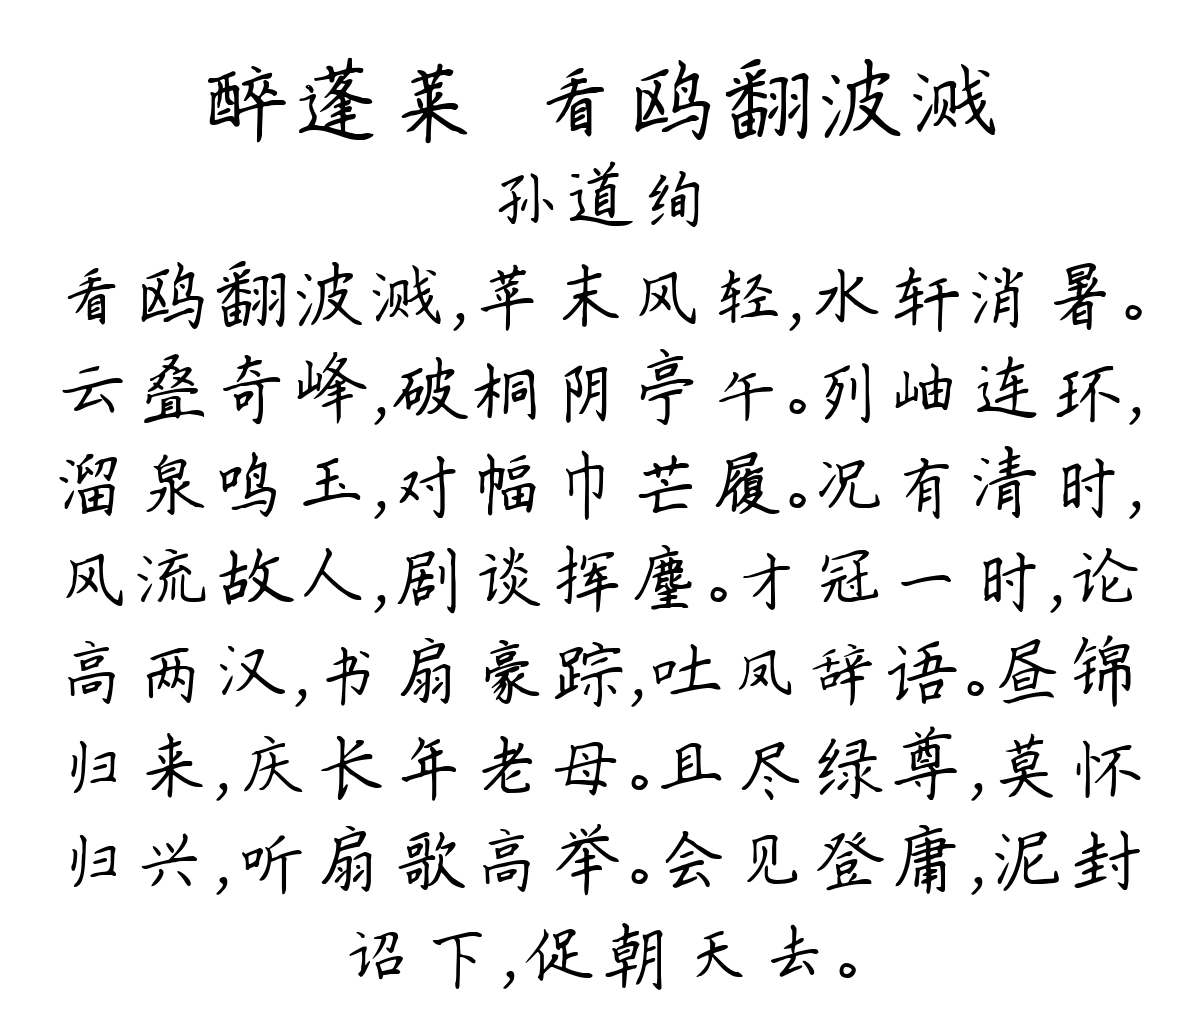 醉蓬莱 看鸥翻波溅
孙道绚
看鸥翻波溅,苹末风轻,水轩消暑。
云叠奇峰,破桐阴亭午。列岫连环,
溜泉鸣玉,对幅巾芒履。况有清时,
风流故人,剧谈挥麈。才冠一时,论
高两汉,书扇豪踪,吐凤辞语。昼锦
归来,庆长年老母。且尽绿尊,莫怀
归兴,听扇歌高举。会见登庸,泥封
诏下,促朝天去。